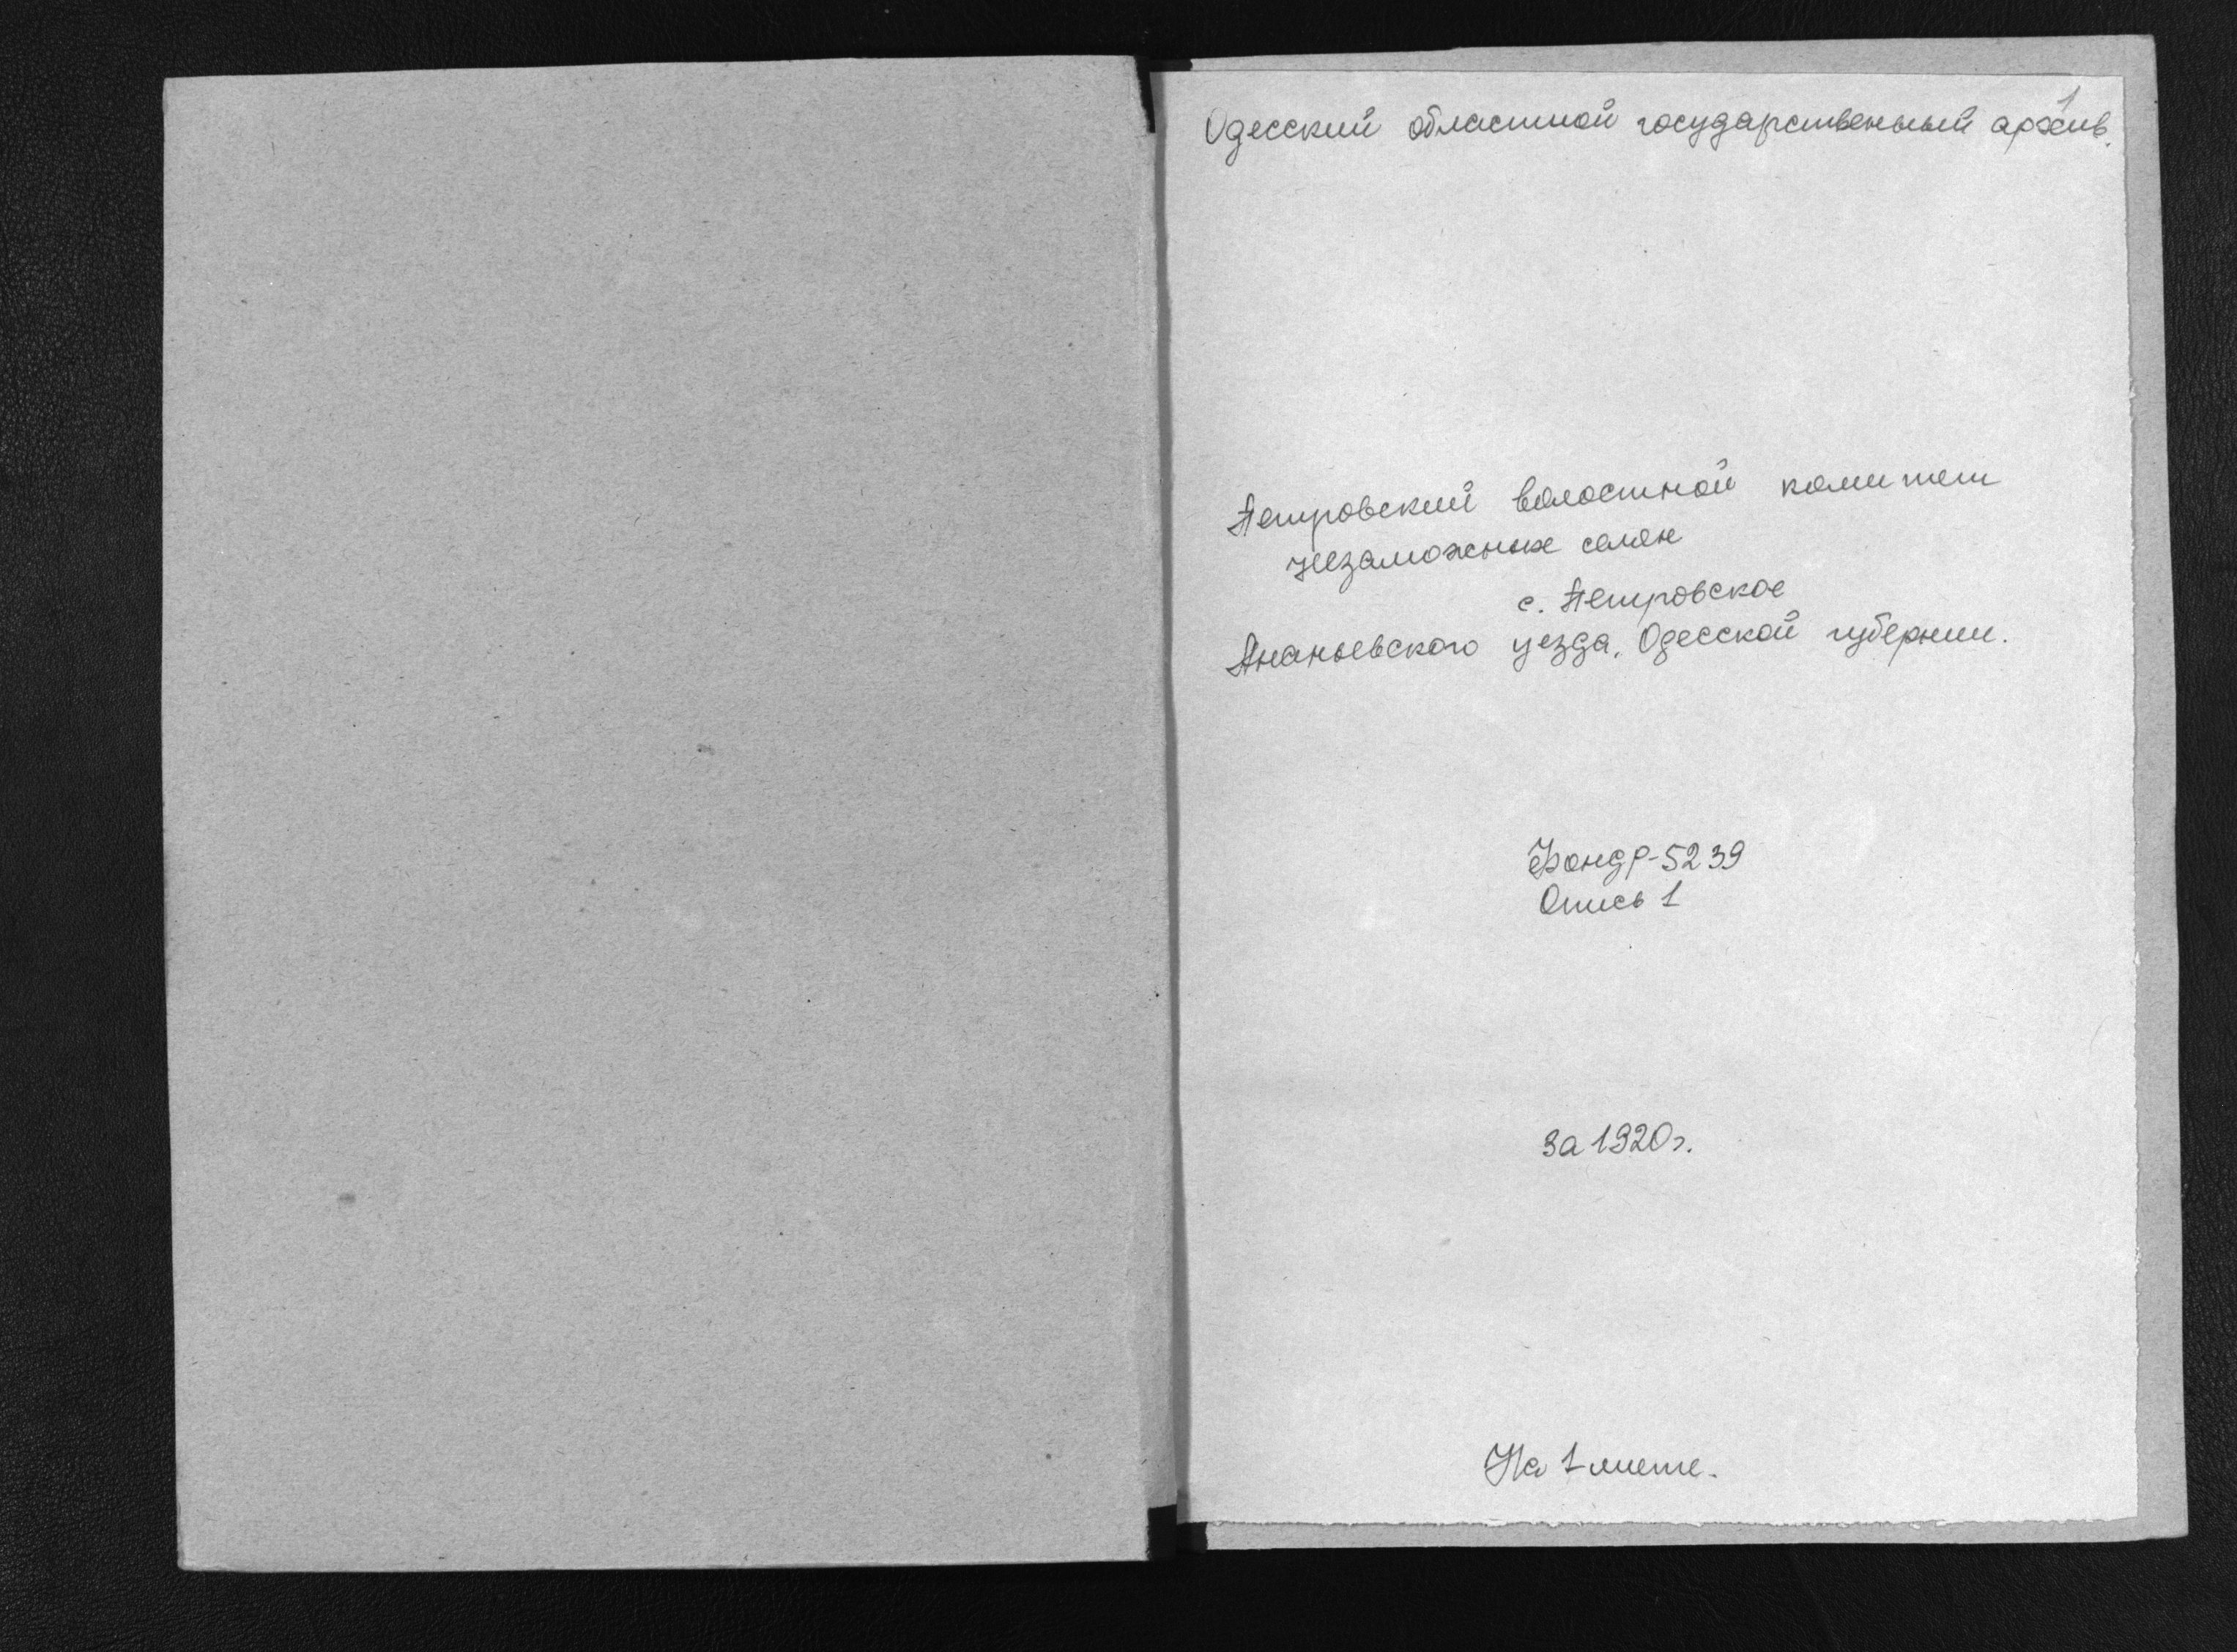 1
Одесский областной государственный архив.
Петровский волостной комитет
незаможных селян
с. Петровское
Ананьевского уезда, Одесской губернии.
Фонд Р-5239
Опись 1
За 1920г.
На 1 листе.